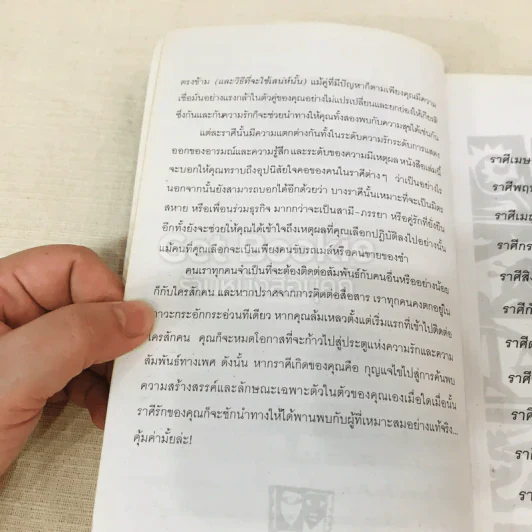 ตรงข้าม (และวิธีที่จะใช้เสน่ห์นั้น) แม้คู่ที่มีปัญหาก็ตามเพียงคุณมีความ
เชื่อมั่นอย่างแรงกล้าในตัวคู่ของคุณอย่างไม่แปรเปลี่ยนและยกย่องให้เกียรติ
ซึ่งกันและกันความรักก็จะช่วยนำทางให้คุณทั้งสองพบกับความสุขได้เช่นกัน
แต่ละราศีนั้นมีความแตกต่างกันทั้งในระดับความรักระดับการแสดง
ออกของอารมณ์และความรู้สึก และระดับของความมีเหตุผล หนังสือเล่มนี้
จะบอกให้คุณทราบถึงอุปนิสัยใจคอของคนในราศีต่างๆ ว่าเป็นอย่างไร
นอกจากนั้นยังสามารถบอกได้อีกด้วยว่า บางราศีนั้นเหมาะที่จะเป็นมิตร
สหาย หรือเพื่อนร่วมธุรกิจ มากกว่าจะเป็นสามี-ภรรยา หรือคู่รักที่ยั่งยืน
อีกทั้งยังจะช่วยให้คุณได้เข้าใจถึงเหตุผลที่คุณเลือกปฏิบัติลงไปอย่างนั้น
แม้คนที่คุณเลือกจะเป็นเพียงคนขับรถเมล์หรือคนขายของชำ
คนเราทุกคนจำเป็นที่จะต้องติดต่อสัมพันธ์กับคนอื่นหรืออย่างน้อย
ก็กับใครสักคน และหากปราศจากการติดต่อสื่อสาร เราทุกคนคงตกอยู่ใน
ภาวะกระอักกระอ่วนทีเดียว หากคุณล้มเหลวตั้งแต่เริ่มแรกที่เข้าไปติดต่อ
ใครสักคน คุณก็จะหมดโอกาสที่จะก้าวไปสู่ประตูแห่งความรักและความ
สัมพันธ์ทางเพศ ดังนั้น หากราศีเกิดของคุณคือ กุญแจไขไปสู่การค้นพบ
ความสร้างสรรค์และลักษณะเฉพาะตัวในตัวของคุณเองเมื่อใดเมื่อนั้น
ราศีรักของคุณก็จะชักนำทางให้ได้พานพบกับผู้ที่เหมาะสมอย่างแท้จริง...
คุ้มค่ามั้ยล่ะ!
ราศีเมษ
ราศีพฤ
ราศีเมถ
ราศีกร
ราศีสิง
ราศีกั
ราศี
ราศี
ราศี
ราศี
ราศี